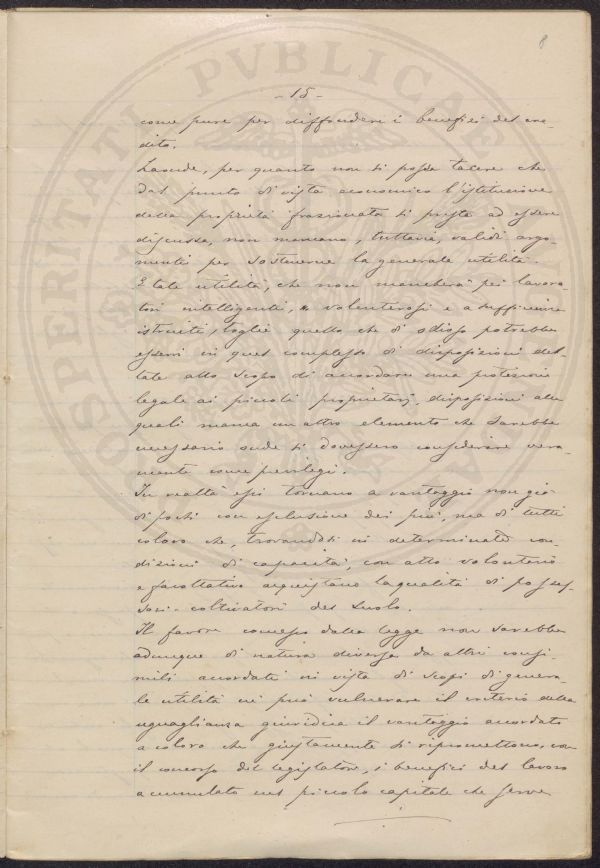 8
PROSPERITATI PVBLICAE
- 15 -
come pure per diffondere i benefici del cre-
dito.
Laonde, per quanto non si possa tacere che
dal punto di vista economico l'istituzione
della proprietà frazionata si presta ad essere
discussa, non mancano, tuttavia, validi argo-
menti per sostenerne la generale utilità.
E tale utilità, che non mancherà pei lavora-
tori intelligenti, volenterosi e a sufficienza
istruiti, toglie quello che di odioso potrebbe
esservi in quel complesso di disposizioni det-
tate allo scopo di accordare una protezione
legale ai piccoli proprietarj, disposizioni alle
quali manca un altro elemento che sarebbe
necessario onde si dovessero considerare vera-
mente come privilegi.
In realtà esse tornano a vantaggio non già
di pochi con esclusione dei più, ma di tutti
coloro che, trovandosi in determinate con-
dizioni di capacità, con atto volontario
e facoltativo acquistano la qualità di posses-
sori-coltivatori del suolo.
Il favore concesso dalla legge non sarebbe
adunque di natura diversa da altri consi-
mili accordati in vista di scopi di genera-
le utilità nè può vulnerare il criterio della
uguaglianza giuridica il vantaggio accordato
a coloro che giustamente si ripromettono, con
il concorso del legislatore, i benefici del lavoro
accumulato nel piccolo capitale che serve